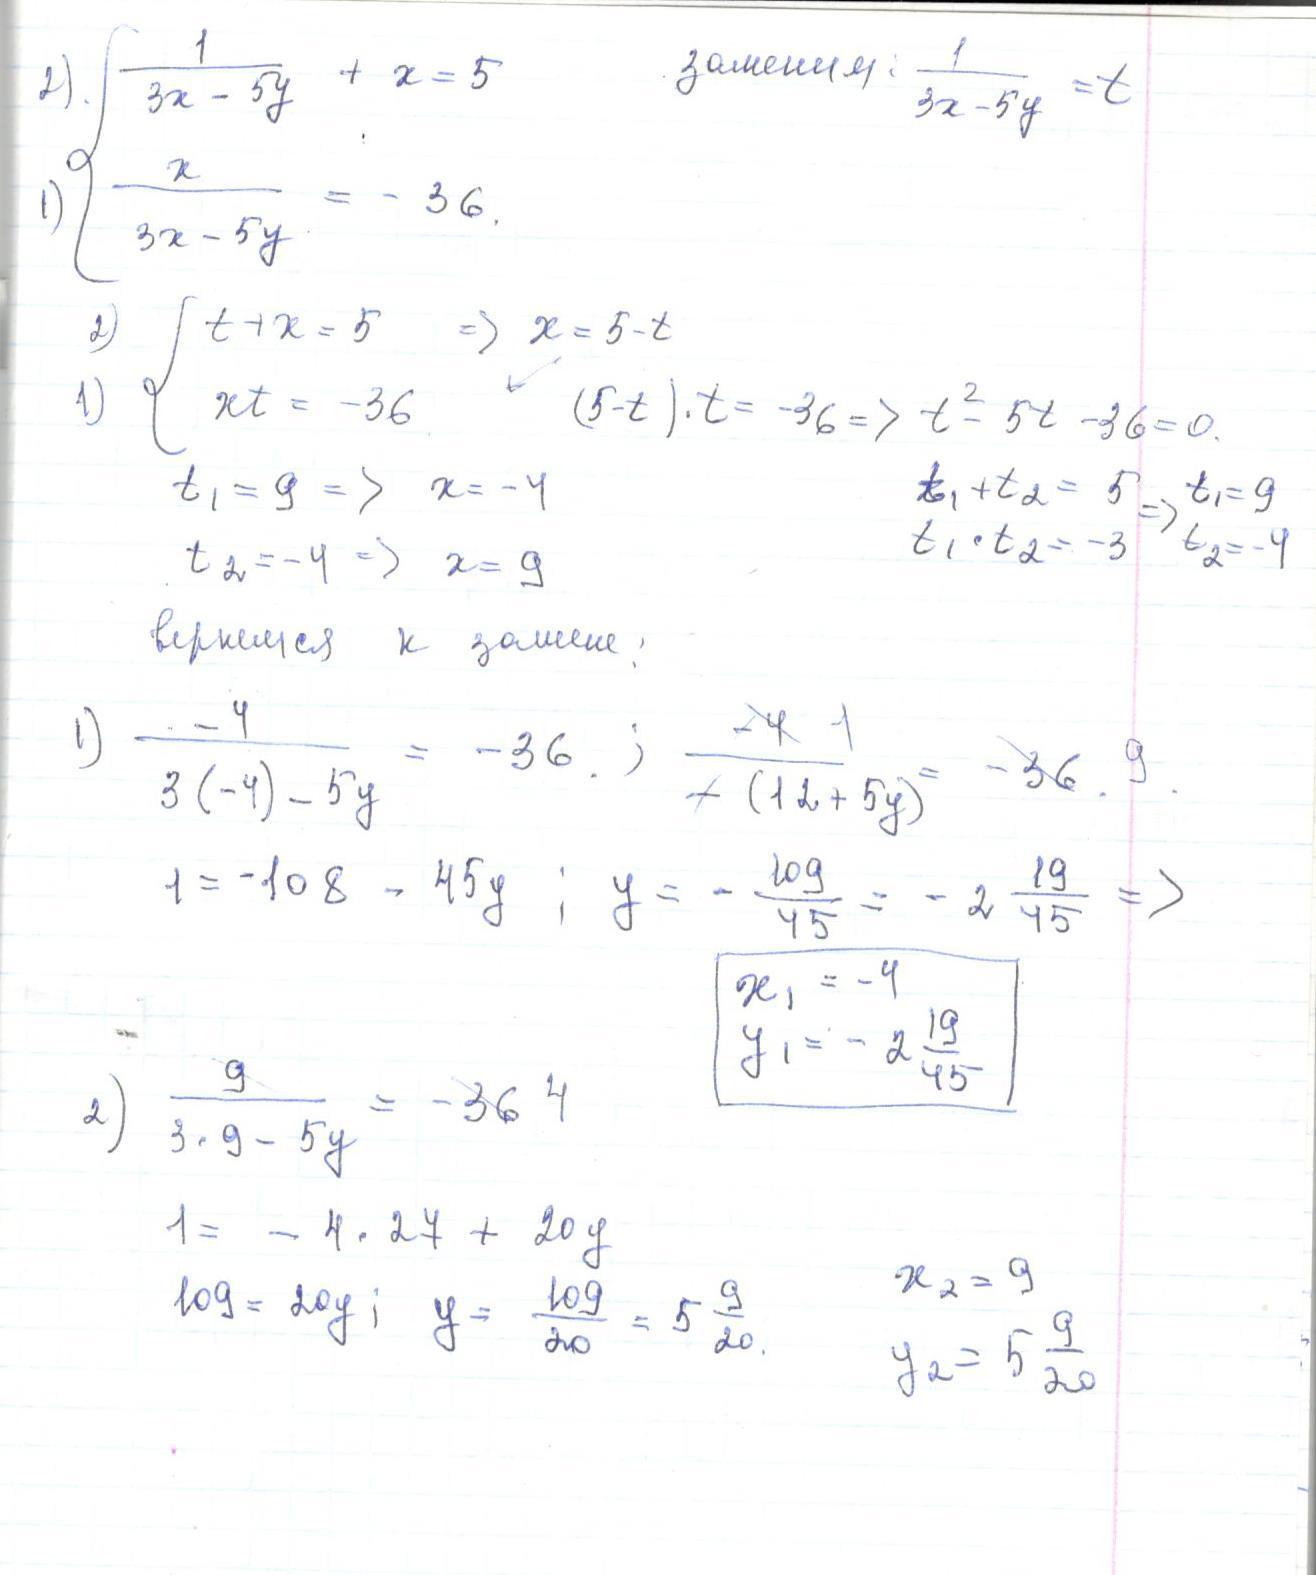 2). 1/(3x - 5y) + x = 5 заменим: 1/(3x-5y) = t
1) x/(3x - 5y) = - 36.
2) t+x = 5 => x = 5-t
1) xt = -36 (5-t).t = -36 => t² - 5t -36 = 0.
t₁ = 9 => x = -4 t₁+t₂ = 5 => t₁=9
t₂ = -4 => x = 9 t₁·t₂ = -3 t₂=-4
вернемся к замене:
1) -4/(3(-4) - 5y) = -36. ; -4 1/(-(12+5y)) = -36. 9.
1 = -108 - 45y ; y = - 109/45 = - 2 19/45 =>
x₁ = -4
y₁ = - 2 19/45
2) 9/(3·9 - 5y) = -36 4
1 = - 4·27 + 20y
109 = 20y; y = 109/20 = 5 9/20.
x₂ = 9
y₂ = 5 9/20